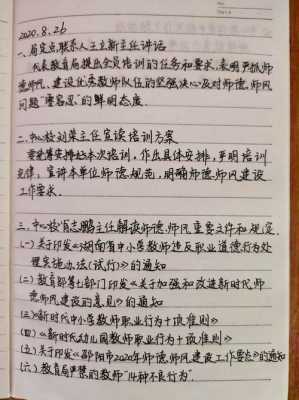 2020.8.26
一、局定点联系人王立新主任讲话
代表教育局提出全员培训的任务和要求,表明严抓师
德师风、建设优秀教师队伍的坚强决心及对师德、师风
问题"零容忍"的鲜明态度.
二、中心校刘荣主任宣读培训方案
安排好本次培训,作出具体安排,严明培训
纪律;宣讲本单位师德规范,明确师德师风建设
工作要求.
三、中心校肖志鹏主任解读师德师风重要文件和规定.
(一)关于印发《湖南省中小学教师违反职业道德行为处
理实施办法(试行)》的通知
(二)教育部等七部门印发《关于加强和改进新时代师
德师风建设的意见》的通知
(三)《新时代中小学教师职业行为十项准则》
(四)《新时代幼儿园教师职业行为十项准则》
(五)关于印发《邵阳市2020年师德师风建设工作要点》的通知
(六)教育局严禁的教师"14种不良行为".